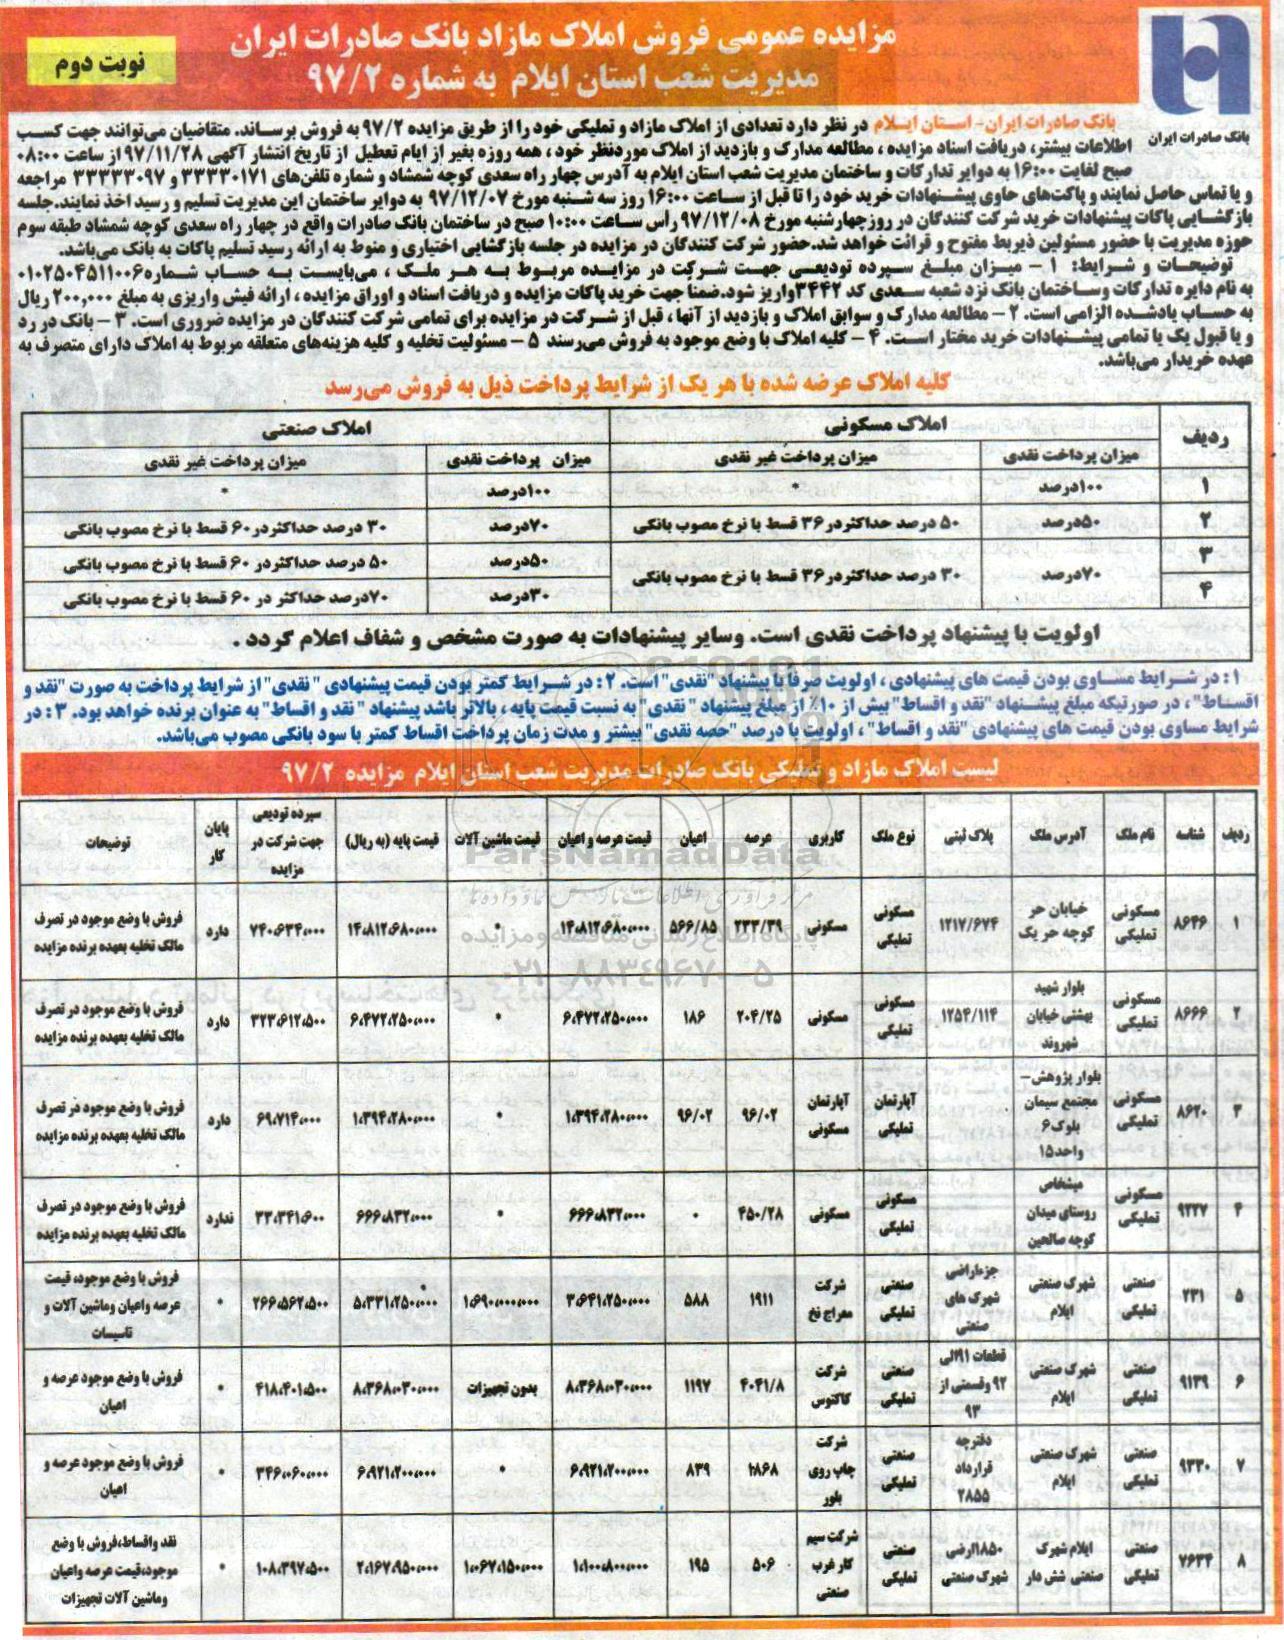 مزایده عمومی فروش املاک مازاد بانک صادرات ایران
مدیریت شعب استان ایلام به شماره ۹۷/۲
نوبت دوم
بانک صادرات ایران
بانک صادرات ایران- استان ایلام در نظر دارد تعدادی از املاک مازاد و تملیکی خود را از طریق مزایده ۹۷/۲ به فروش برساند. متقاضیان می‌توانند جهت کسب
اطلاعات بیشتر، دریافت اسناد مزایده ، مطالعه مدارک و بازدید از املاک موردنظر خود ، همه روزه بغیر از ایام تعطیل از تاریخ انتشار آگهی ۹۷/۱۱/۲۸ از ساعت ۰۸:۰۰
صبح لغایت ۱۶:۰۰ به دوایر تدارکات و ساختمان مدیریت شعب استان ایلام به آدرس چهار راه سعدی کوچه شمشاد و شماره تلفن‌های ۳۳۳۳۰۱۷۱ و ۳۳۳۳۳۰۹۷ مراجعه
و یا تماس حاصل نمایند و پاکت‌های حاوی پیشنهادات خرید خود را تا قبل از ساعت ۱۶:۰۰ روز سه شنبه مورخ ۹۷/۱۲/۰۷ به دوایر ساختمان این مدیریت تسلیم و رسید اخذ نمایند.جلسه
بازگشایی پاکات پیشنهادات خرید شرکت کنندگان در روز چهارشنبه مورخ ۹۷/۱۲/۰۸ رأس ساعت ۱۰:۰۰ صبح در ساختمان بانک صادرات واقع در چهار راه سعدی کوچه شمشاد طبقه سوم
حوزه مدیریت با حضور مسئولین ذیربط مفتوح و قرائت خواهد شد.حضور شرکت کنندگان در مزایده در جلسه بازگشایی اختیاری و منوط به ارائه رسید تسلیم پاکات به بانک می‌باشد.
توضیحات و شرایط: ۱ – میزان مبلغ سپرده تودیعی جهت شرکت در مزایده مربوط به هر ملک ، می‌بایست به حساب شماره ۰۱۰۲۵۰۴۵۱۱۰۰۶
به نام دایره تدارکات وساختمان بانک نزد شعبه سعدی کد ۳۴۴۲ واریز شود.ضمنا جهت خرید پاکات مزایده و دریافت اسناد و اوراق مزایده ، ارائه فیش واریزی به مبلغ ۲۰۰,۰۰۰ ریال
به حساب یادشده الزامی است. ۲ – مطالعه مدارک و سوابق املاک و بازدید از آنها ، قبل از شرکت در مزایده برای تمامی شرکت کنندگان در مزایده ضروری است. ۳ – بانک در رد
و یا قبول یک یا تمامی پیشنهادات خرید مختار است. ۴ – کلیه املاک با وضع موجود به فروش می‌رسند ۵ – مسئولیت تخلیه و کلیه هزینه‌های متعلقه مربوط به املاک دارای متصرف به
عهده خریدار می‌باشد.
کلیه املاک عرضه شده با هر یک از شرایط پرداخت ذیل به فروش می‌رسد
ردیف املاک مسکونی املاک صنعتی
میزان پرداخت نقدی میزان پرداخت غیر نقدی میزان پرداخت نقدی میزان پرداخت غیر نقدی
۱ ۱۰۰درصد * ۱۰۰درصد *
۲ ۵۰درصد ۵۰ درصد حداکثردر ۳۶ قسط با نرخ مصوب بانکی ۷۰درصد ۳۰ درصد حداکثردر ۶۰ قسط با نرخ مصوب بانکی
۳ ۷۰درصد ۳۰ درصد حداکثردر ۳۶ قسط با نرخ مصوب بانکی ۵۰درصد ۵۰ درصد حداکثردر ۶۰ قسط با نرخ مصوب بانکی
۴ ۳۰درصد ۷۰درصد حداکثر در ۶۰ قسط با نرخ مصوب بانکی
اولویت با پیشنهاد پرداخت نقدی است. وسایر پیشنهادات به صورت مشخص و شفاف اعلام گردد .
۱ : در شرایط مساوی بودن قیمت های پیشنهادی ، اولویت صرفا با پیشنهاد "نقدی" است. ۲ : در شرایط کمتر بودن قیمت پیشنهادی " نقدی" از شرایط پرداخت به صورت "نقد و
اقساط" ، در صورتیکه مبلغ پیشنهاد "نقد و اقساط" بیش از ۱۰٪ از مبلغ پیشنهاد " نقدی" به نسبت قیمت پایه ، بالاتر باشد پیشنهاد " نقد و اقساط" به عنوان برنده خواهد بود. ۳ : در
شرایط مساوی بودن قیمت های پیشنهادی "نقد و اقساط" ، اولویت با درصد "حصه نقدی" بیشتر و مدت زمان پرداخت اقساط کمتر با سود بانکی مصوب می‌باشد.
لیست املاک مازاد و تملیکی بانک صادرات مدیریت شعب استان ایلام مزایده ۹۷/۲
ردیف شناسه نام ملک آدرس ملک پلاک ثبتی نوع ملک کاربری عرصه اعیان قیمت عرصه و اعیان قیمت ماشین آلات قیمت پایه (به ریال) سپرده تودیعی جهت شرکت در مزایده پایان کار توضیحات
۱ ۸۶۴۶ مسکونی تملیکی خیابان حر کوچه حر یک ۱۲۱۷/۶۷۴ مسکونی تملیکی مسکونی ۲۳۳/۳۹ ۵۶۶/۸۵ ۱۴،۸۱۲،۶۸۰،۰۰۰ * ۱۴،۸۱۲،۶۸۰،۰۰۰ ۷۴۰،۶۳۴،۰۰۰ دارد فروش با وضع موجود در تصرف مالک تخلیه بعهده برنده مزایده
۲ ۸۶۶۶ مسکونی تملیکی بلوار شهید بهشتی خیابان شهروند ۱۲۵۴/۱۱۴ مسکونی تملیکی مسکونی ۲۰۴/۲۵ ۱۸۶ ۶،۴۷۲،۲۵۰،۰۰۰ * ۶،۴۷۲،۲۵۰،۰۰۰ ۳۲۳،۶۱۲،۵۰۰ دارد فروش با وضع موجود در تصرف مالک تخلیه بعهده برنده مزایده
۳ ۸۶۲۰ مسکونی تملیکی بلوار پژوهش – مجتمع سیمان بلوک ۶ واحد ۱۵ آپارتمان تملیکی آپارتمان مسکونی ۹۶/۰۲ ۹۶/۰۲ ۱،۳۹۴،۲۸۰،۰۰۰ ۱،۳۹۴،۲۸۰،۰۰۰ ۶۹،۷۱۴،۰۰۰ دارد فروش با وضع موجود در تصرف مالک تخلیه بعهده برنده مزایده
۴ ۹۲۲۷ مسکونی تملیکی میشخاص روستای میدان کوچه صالحین مسکونی تملیکی مسکونی ۴۵۰/۲۸ ۰ ۶۶۶،۸۳۲،۰۰۰ * ۶۶۶،۸۳۲،۰۰۰ ۳۳،۳۴۱،۶۰۰ ندارد فروش با وضع موجود در تصرف مالک تخلیه بعهده برنده مزایده
۵ ۲۳۱ صنعتی تملیکی شهرک صنعتی ایلام جزءاراضی شهرک های صنعتی صنعتی تملیکی شرکت معراج نخ ۱۹۱۱ ۵۸۸ ۳،۶۴۱،۲۵۰،۰۰۰ ۱،۶۹۰،۰۰۰،۰۰۰ ۵،۳۳۱،۲۵۰،۰۰۰ ۲۶۶،۵۶۲،۵۰۰ * فروش با وضع موجود، قیمت عرصه واعیان وماشین آلات و تاسیسات
۶ ۹۱۳۹ صنعتی تملیکی شهرک صنعتی ایلام قطعات ۹۱الی ۹۲ وقسمتی از ۹۳ صنعتی تملیکی شرکت کاکتوس ۴۰۴۱/۸ ۱۱۹۷ ۸،۳۶۸،۰۳۰،۰۰۰ بدون تجهیزات ۸،۳۶۸،۰۳۰،۰۰۰ ۴۱۸،۴۰۱،۵۰۰ * فروش با وضع موجود عرصه و اعیان
۷ ۹۳۳۰ صنعتی تملیکی شهرک صنعتی ایلام دفترچه قرارداد ۲۸۵۵ صنعتی تملیکی شرکت چاپ روی بلور ۲۸۶۸ ۸۳۹ ۶،۹۲۱،۲۰۰،۰۰۰ * ۶،۹۲۱،۲۰۰،۰۰۰ ۳۴۶،۰۶۰،۰۰۰ * فروش با وضع موجود عرصه و اعیان
۸ ۷۶۳۴ صنعتی تملیکی ایلام شهرک صنعتی شش دار ۱۸۵۰ارضی شهرک صنعتی صنعتی تملیکی شرکت سیم کار غرب صنعتی ۵۰۶ ۱۹۵ ۱،۱۰۰،۸۰۰،۰۰۰ ۱،۰۶۷،۱۵۰،۰۰۰ ۲،۱۶۷،۹۵۰،۰۰۰ ۱۰۸،۳۹۷،۵۰۰ * نقد واقساط،فروش با وضع موجود،قیمت عرصه واعیان وماشین آلات تجهیزات
ParsNamadData
پایگاه اطلاع رسانی مناقصه و مزایده
۰۲۱-۸۸۳۴۹۶۷۰-۵